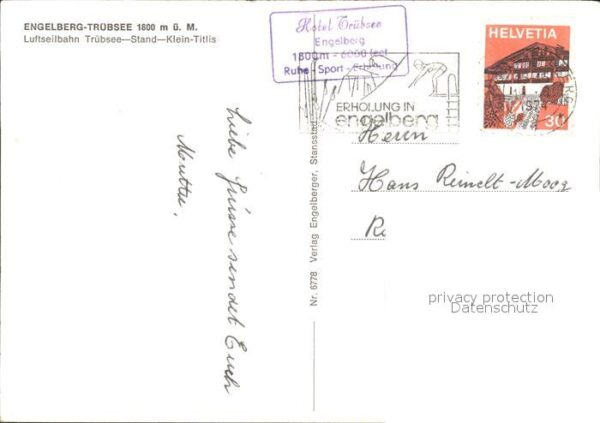 ENGELBERG-TRÜBSEE 1800 m ü. M.
Luftseilbahn Trübsee—Stand—Klein-Titlis
Hotel Trübsee
Engelberg
1800m - 6000 feet
Ruhe - Sport - Erholung
ERHOLUNG IN
engelberg
HELVETIA
1974
30
Liebe Grüsse sendet Euch
Mutter.
Nr. 6778 Verlag Engelberger, Stansstad
Herrn
Hans Reinelt-Moog
R
privacy protection
Datenschutz